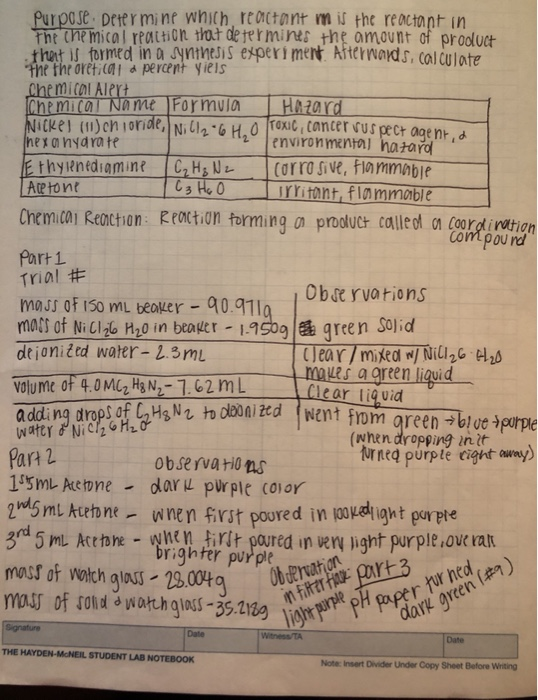 Purpose: Determine which reactant m is the reactant in
the chemical reaction that determines the amount of product
that is formed in a synthesis experiment. Afterwards, calculate
the theoretical & percent yiels
Chemical Alert
Chemical Name Formula Hazard
Nickel (II) chloride, hexahydrate NiCl2·6 H2O Toxic, cancer suspect agent, & environmental hazard
Ethylenediamine C2H8N2 corrosive, flammable
Acetone C3H6O irritant, flammable
Chemical Reaction: Reaction forming a product called a coordination
compound
Part 1
Trial #
Observations
mass of 150 mL beaker - 90.971g
mass of NiCl26 H2O in beaker - 1.950g green solid
deionized water - 2.3mL clear/mixed w/ NiCl26 H2O
makes a green liquid
volume of 4.0M C2H8N2 - 7.62 mL clear liquid
adding drops of C2H8N2 to deionized went from green → blue → purple
water & NiCl26H2O (when dropping in it
turned purple right away)
Part 2 observations
1st 5mL Acetone - dark purple color
2nd 5 mL Acetone - when first poured in looked light purple
3rd 5 mL Acetone - when first poured in very light purple, overall
brighter purple
mass of watch glass - 28.004g
mass of solid & watch glass - 35.218g
Observation
in filter
light purple
part 3
pH paper turned
dark green (#9)
Signature Date Witness/TA Date
THE HAYDEN-McNEIL STUDENT LAB NOTEBOOK Note: Insert Divider Under Copy Sheet Before Writing